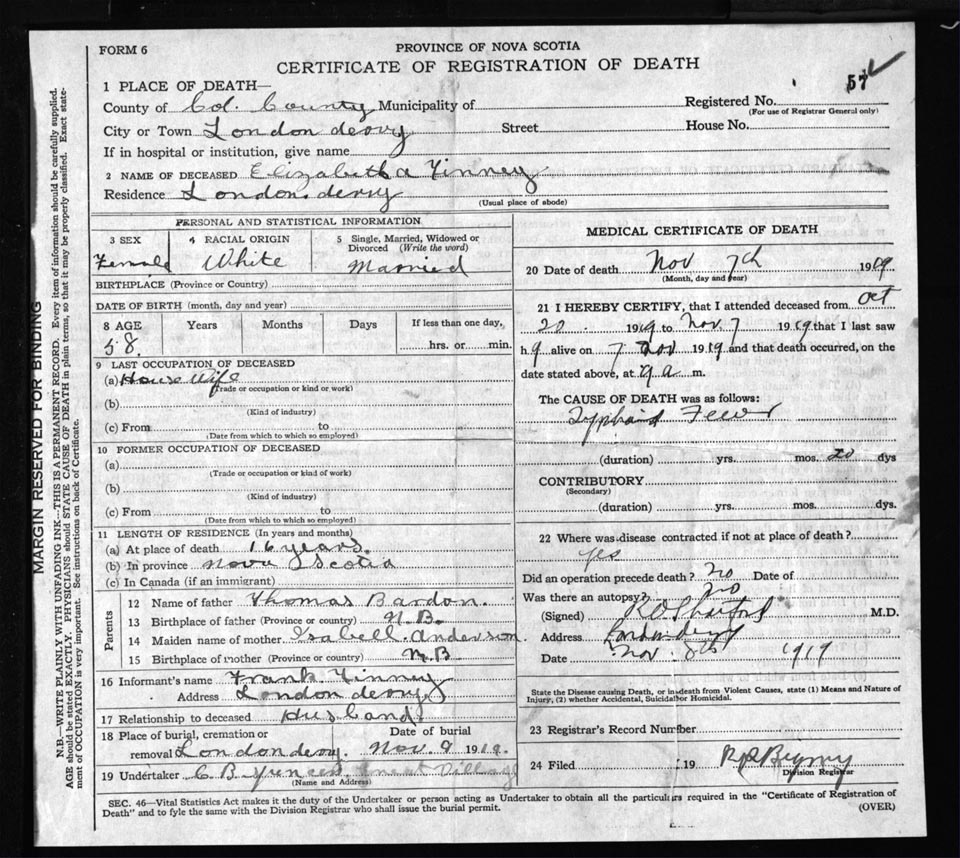 FORM 6
PROVINCE OF NOVA SCOTIA
CERTIFICATE OF REGISTRATION OF DEATH
57
1 PLACE OF DEATH—
County of Col. County Municipality of
Registered No.
(For use of Registrar General only)
City or Town London derry Street House No.
If in hospital or institution, give name
2 NAME OF DECEASED Elizabeth a Finney
Residence London derry
(Usual place of abode)
PERSONAL AND STATISTICAL INFORMATION
3 SEX 4 RACIAL ORIGIN 5 Single, Married, Widowed or
Divorced (Write the word)
Female White Married
BIRTHPLACE (Province or Country)
DATE OF BIRTH (month, day and year)
8 AGE Years Months Days If less than one day,
58. hrs. or min.
9 LAST OCCUPATION OF DECEASED
(a) House Wife
(Trade or occupation or kind or work)
(b)
(Kind of industry)
(c) From to
(Date from which to which so employed)
10 FORMER OCCUPATION OF DECEASED
(a)
(Trade or occupation or kind of work)
(b)
(Kind of industry)
(c) From to
(Date from which to which so employed)
11 LENGTH OF RESIDENCE (In years and months)
(a) At place of death 16 years.
(b) In province Nova Scotia
(c) In Canada (if an immigrant)
Parents
12 Name of father Thomas Bardon.
13 Birthplace of father (Province or country) N.B.
14 Maiden name of mother Isabell Anderson
15 Birthplace of mother (Province or country) N.B
16 Informant's name Frank Finney
Address London derry
17 Relationship to deceased Husband
18 Place of burial, cremation or Date of burial
removal London derry. Nov. 9 1919.
19 Undertaker C. B. Great Village
(Name and Address)
MEDICAL CERTIFICATE OF DEATH
20 Date of death Nov 7th 1919
(Month, day and year)
21 I HEREBY CERTIFY, that I attended deceased from Oct
20. 1919 to Nov 7 1919 that I last saw
h alive on 7 Nov 1919 and that death occurred, on the
date stated above, at 9 a m.
The CAUSE OF DEATH was as follows:
Typhoid Fever
(duration) yrs. mos. 20 dys
CONTRIBUTORY
(Secondary)
(duration) yrs. mos. dys.
22 Where was disease contracted if not at place of death?
yes
Did an operation precede death? No Date of
Was there an autopsy? No
(Signed) M.D.
Address Londonderry
Date Nov. 8th 1919
State the Disease causing Death, or in death from Violent Causes, state (1) Means and Nature of
Injury, (2) whether Accidental, Suicidal or Homicidal.
23 Registrar's Record Number
24 Filed 19
Division Registrar
SEC. 46—Vital Statistics Act makes it the duty of the Undertaker or person acting as Undertaker to obtain all the particulars required in the "Certificate of Registration of
Death" and to fyle the same with the Division Registrar who shall issue the burial permit.
(OVER)
MARGIN RESERVED FOR BINDING
N.B.—WRITE PLAINLY WITH UNFADING INK—THIS IS A PERMANENT RECORD. Every item of information should be carefully supplied.
AGE should be stated EXACTLY. PHYSICIANS should STATE CAUSE OF DEATH in plain terms, so that it may be properly classified. Exact state-
ment of OCCUPATION is very important. See instructions on back of Certificate.